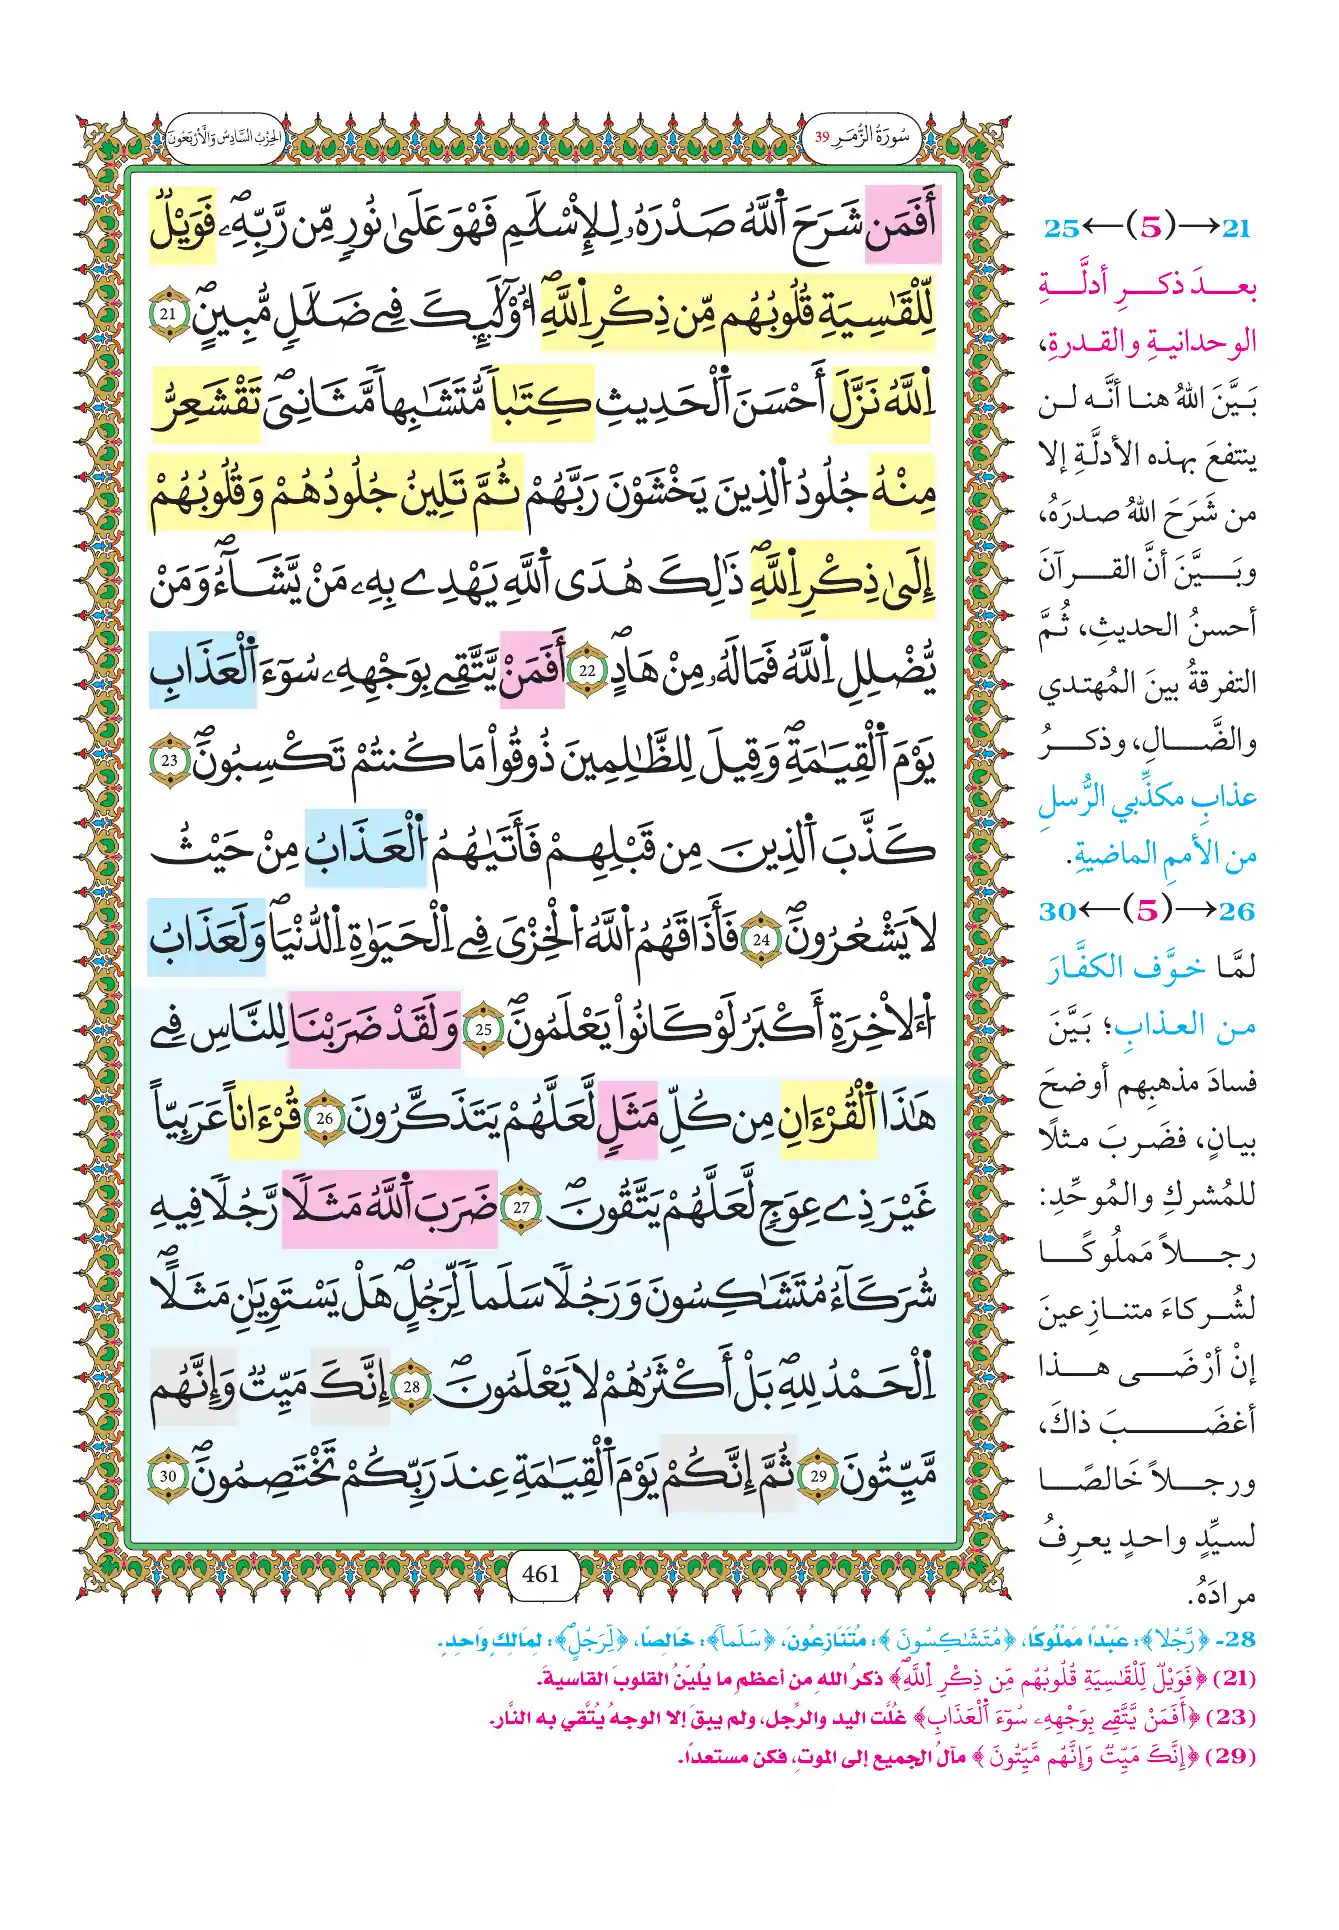 سُورَةُ الزُّمَرِ 39
الحِزْبُ السَّادِسُ وَالْأَرْبَعُونَ
أَفَمَن شَرَحَ اَللَّهُ صَدْرَهُۥ لِلْإِسْلَٰمِ فَهْوَ عَلَىٰ نُورٖ مِّن رَّبِّهِۦۖ فَوَيْلٞ
لِّلْقَٰسِيَةِ قُلُوبُهُم مِّن ذِكْرِ اِللَّهِۖ أُوْلَٰٓئِكَ فِے ضَلَٰلٖ مُّبِينٍۖ 21
اِ۬للَّهُ نَزَّلَ أَحْسَنَ اَلْحَدِيثِ كِتَٰباٗ مُّتَشَٰبِهاٗ مَّثَانِيَۖ تَقْشَعِرُّ
مِنْهُ جُلُودُ اُلذِينَ يَخْشَوْنَ رَبَّهُمْ ثُمَّ تَلِينُ جُلُودُهُمْ وَقُلُوبُهُمْ
إِلَىٰ ذِكْرِ اِللَّهِۖ ذَٰلِكَ هُدَى اَللَّهِ يَهْدِے بِهِۦ مَنْ يَّشَآءُۖ وَمَنْ
يُّضْلِلِ اِللَّهُ فَمَا لَهُۥ مِنْ هَادٍۖ 22 أَفَمَنْ يَّتَّقِے بِوَجْهِهِۦ سُوٓءَ اَلْعَذَابِ
يَوْمَ اَلْقِيَٰمَةِۖ وَقِيلَ لِلظَّٰلِمِينَ ذُوقُواْ مَا كُنتُمْ تَكْسِبُونَۖ 23
كَذَّبَ اَلذِينَ مِن قَبْلِهِمْ فَأَتَىٰهُمُ اُلْعَذَابُ مِنْ حَيْثُ
لَا يَشْعُرُونَۖ 24 فَأَذَاقَهُمُ اُللَّهُ اُلْخِزْيَ فِے اِلْحَيَوٰةِ اِلدُّنْي۪اۖ وَلَعَذَابُ
اُ۬لَاخِرَةِ أَكْبَرُ لَوْ كَانُواْ يَعْلَمُونَۖ 25 وَلَقَدْ ضَرَبْنَا لِلنَّاسِ فِے
هَٰذَا اَلْقُرْءَانِ مِن كُلِّ مَثَلٖ لَّعَلَّهُمْ يَتَذَكَّرُونَ 26 قُرْءَاناً عَرَبِيّاً
غَيْرَ ذِے عِوَجٖ لَّعَلَّهُمْ يَتَّقُونَۖ 27 ضَرَبَ اَللَّهُ مَثَلٗا رَّجُلٗا فِيهِ
شُرَكَآءُ مُتَشَٰكِسُونَ وَرَجُلٗا سَلَماٗ لِّرَجُلٍۖ هَلْ يَسْتَوِيَٰنِ مَثَلًاۖ
اِ۬لْحَمْدُ لِلهِۖ بَلْ أَكْثَرُهُمْ لَا يَعْلَمُونَۖ 28 إِنَّكَ مَيِّتٞ وَإِنَّهُم
مَّيِّتُونَ 29 ثُمَّ إِنَّكُمْ يَوْمَ اَلْقِيَٰمَةِ عِندَ رَبِّكُمْ تَخْتَصِمُونَۖ 30
461
21→(5)←25
بعدَ ذكرِ أدلَّةِ
الوحدانيةِ والقدرةِ،
بَيَّنَ اللهُ هنا أنَّه لن
ينتفعَ بهذه الأدلَّةِ إلا
من شَرَحَ اللهُ صدرَهُ،
وبَيَّنَ أنَّ القرآنَ
أحسنُ الحديثِ، ثُمَّ
التفرقةُ بينَ المُهتدي
والضَّالِ، وذكرُ
عذابِ مكذِّبي الرُّسلِ
من الأممِ الماضيةِ.
26→(5)←30
لمَّا خوَّف الكفَّارَ
من العذابِ؛ بَيَّنَ
فسادَ مذهبِهم أوضحَ
بيانٍ، فضَربَ مثلًا
للمُشركِ والمُوحِّدِ:
رجلاً مَملُوكًا
لشُركاءَ متنازِعينَ
إنْ أرْضَى هذا
أغضَبَ ذاكَ،
ورجلاً خَالصًا
لسيِّدٍ واحدٍ يعرِفُ
مرادَهُ.
28- ﴿رَّجُلٗا﴾: عَبْدًا مَمْلُوكًا، ﴿مُتَشَٰكِسُونَ﴾: مُتَنَازِعُونَ، ﴿سَلَماٗ﴾: خَالِصًا، ﴿لِّرَجُلٍۖ﴾: لِمَالِكٍ وَاحِدٍ.
(21) ﴿فَوَيْلٞ لِّلْقَٰسِيَةِ قُلُوبُهُم مِّن ذِكْرِ اِللَّهِۖ﴾ ذكرُ اللهِ من أعظمِ ما يُليِّنُ القلوبَ القاسيةَ.
(23) ﴿أَفَمَنْ يَّتَّقِے بِوَجْهِهِۦ سُوٓءَ اَلْعَذَابِ﴾ غُلَّت اليد والرِّجل، ولم يبقَ إلا الوجهُ يُتَّقي به النَّار.
(29) ﴿إِنَّكَ مَيِّتٞ وَإِنَّهُم مَّيِّتُونَ﴾ مآلُ الجميع إلى الموتِ، فكن مستعدًا.